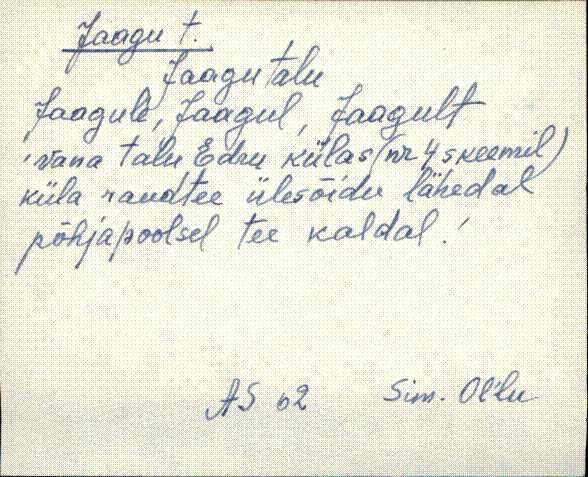 Jaagu t.
Jaagu talu
Jaagule, Jaagul, Jaagult
'vana talu Edru külas (nr 4 skeemil)
küla raudtee ülesõidu lähedal
põhjapoolsel tee kaldal.'
AS 62 Sim.